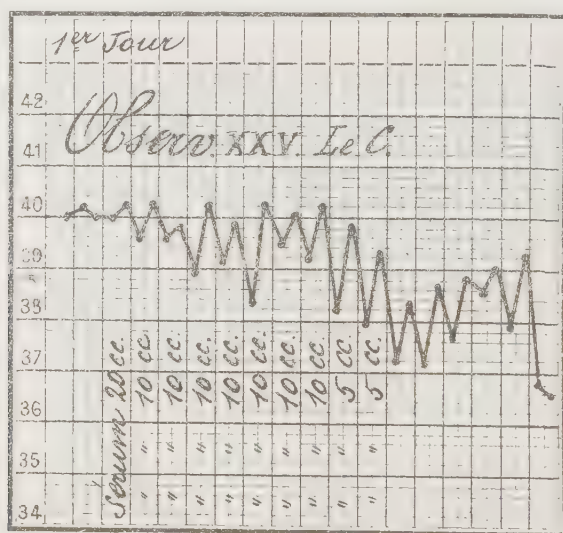 1er Jour
42
Observ. XXV. Le C.
41
40
39
38
37
36
35
34
Sérum 20 cc.
" " 10 cc.
" " 10 cc.
" " 10 cc.
" " 10 cc.
" " 10 cc.
" " 10 cc.
" " 10 cc.
" " 5 cc.
" " 5 cc.